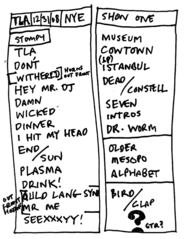 TLA 12/31/08 NYE
STOMPY
TLA
DON'T
WITHERED HORNS OUT FRONT
HEY MR. DJ
DAMN
WICKED
DINNER
I HIT MY HEAD
END/
SUN
PLASMA
DRINK!
AULD LANG-SYNE
OUT FRONT
MR ME
SEEXXXYY!
SHOW ONE
MUSEUM
COWTOWN
(LP)
ISTANBUL
DEAD/
CONSTELL
SEVEN
INTROS
DR. WORM
OLDER
MESSPO
ALPHABET
BIRD/
CLAP
?
GTR?